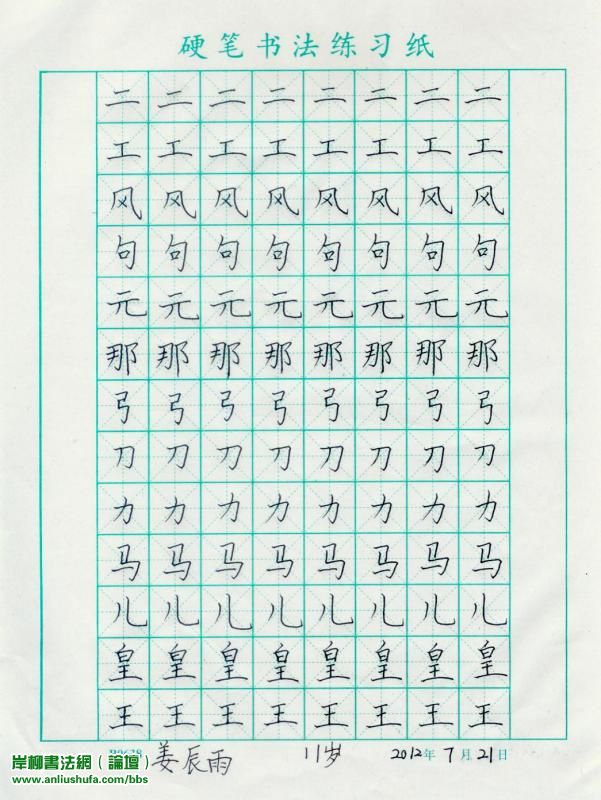 硬笔书法练习纸
二二二二二二二二
工工工工工工工工
风风风风风风风风
句句句句句句句句
元元元元元元元元
那那那那那那那那
弓弓弓弓弓弓弓弓
刀刀刀刀刀刀刀刀
力力力力力力力力
马马马马马马马马
儿儿儿儿儿儿儿儿
皇皇皇皇皇皇皇皇
王王王王王王王王
姜辰雨 11岁 2012年7月21日
岸柳書法網（論壇）
www.anliushufa.com/bbs